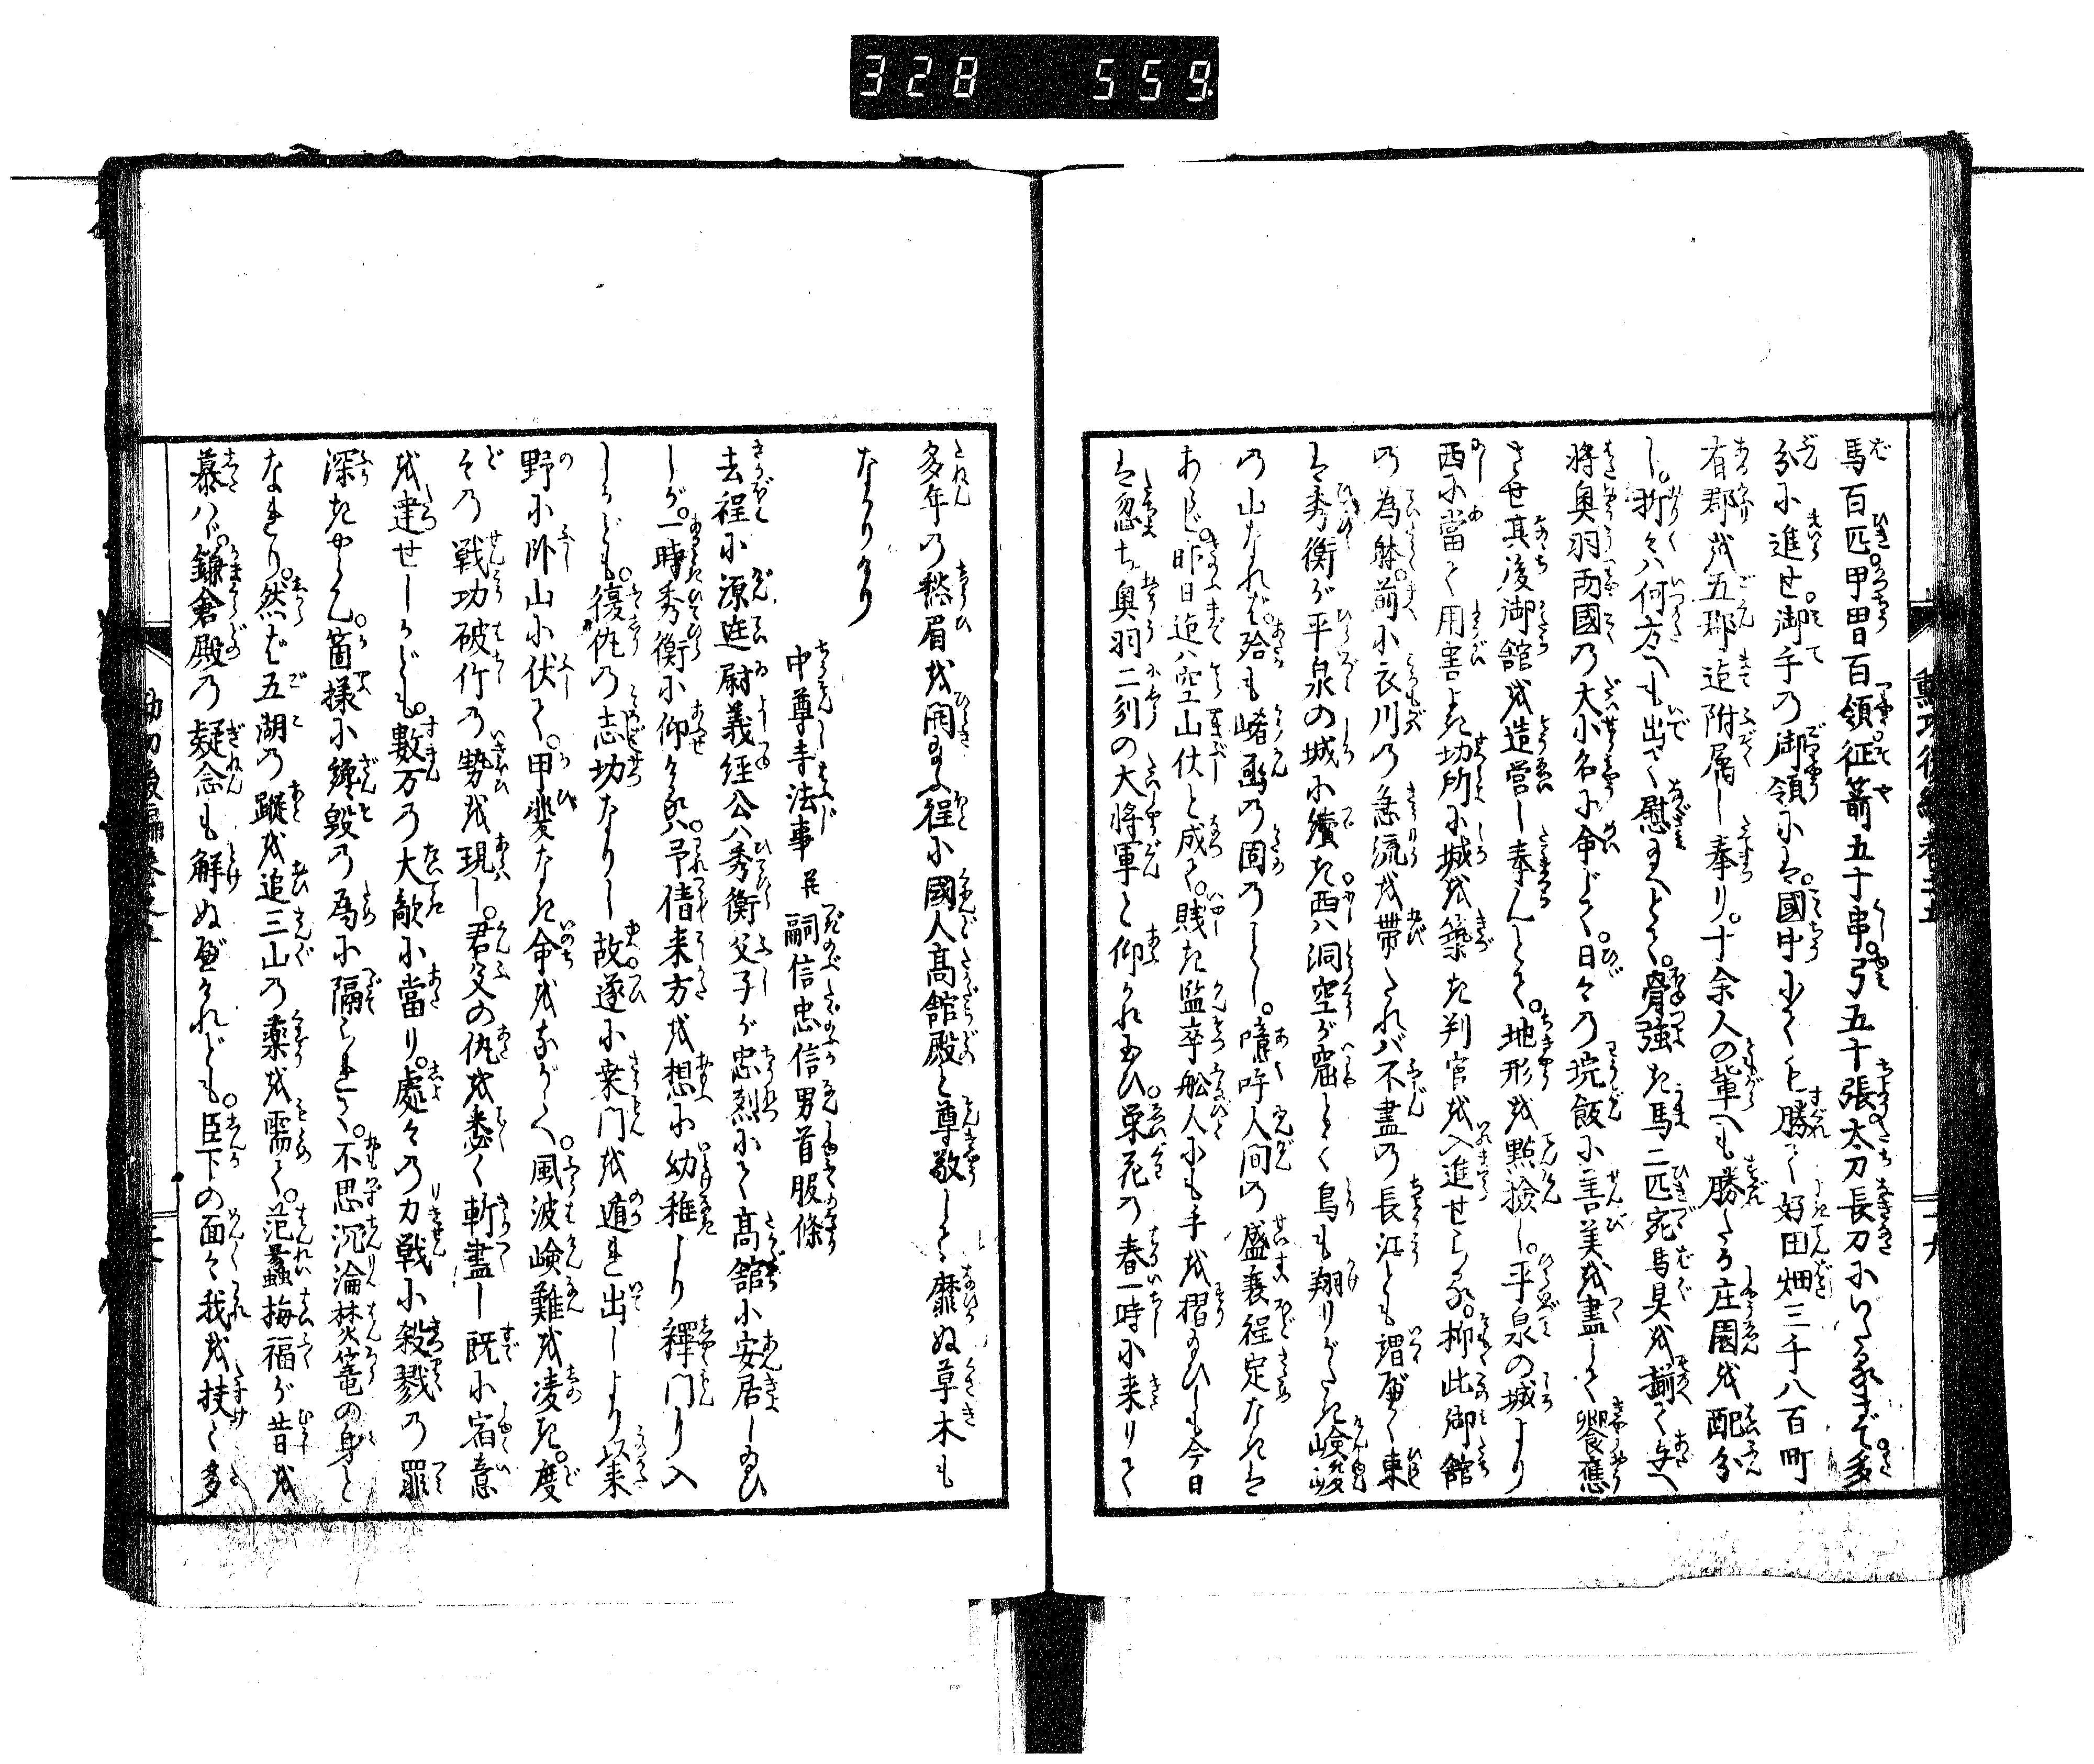 328 559
馬百匹。甲冑百領征箭五十串。弓五十張太刀長刀にいたるまで多
分に進せ。御手の御領には。國中にても勝て好田畑三千八百町
有郡を五郡迄附属し奉り。十余人の輩へも勝たる庄園を配分
し。折々ハ何方へも出て慰玉へとて。脊強き馬二匹宛馬具を揃て与へ
將奥羽両國の大小名に命じて。日々の琓飯に善美を盡して饗應
させ其後御館を造営し奉んとて。地形を點撿し。平泉の城より
西に當て用害よき切所に城を築き判官を入進せらる。抑此御館
の為躰。前に衣川の急流を帯たれバ不盡の長江とも謂べく東
は秀衡が平泉の城に續き。西ハ洞空が窟とて鳥も翔りがたき嶮岨
の山なれば殆も崤凾の固のごとし。嗟吁人間の盛衰程定なきは
あらじ。昨日迄ハ空山伏と成て。賎き監卒舩人にも手を摺玉ひしも今日
は忽ち奥羽二刕の大将軍と仰がれ玉ひ。栄花の春一時に来りて
多年の愁眉を開玉ふ程に國人髙舘殿と尊敬して靡ぬ草木も
なかりけり
中尊寺法事并嗣信忠信男首服條
去程に源廷尉義経公ハ秀衡父子が忠烈にて髙舘に安居し玉ひ
しが。一時秀衡に仰けるハ。予倩来方を想に幼稚より釋門に入
しかども。復仇の志切なりし故。遂に桒門を遁れ出しより以来
野に臥山に伏て。甲斐なき命をながらへ。風波嶮難を凌ぎ。度
々の戦功破竹の勢を現し。君父の仇を悉く斬盡し既に宿意
を達せしかども。數万の大敵に當り。處々の力戦に殺戮の罪
深きやらん。箇様に讒毀の為に隔られて。不思沉淪樊篭の身と
なれり。然ば五湖の蹤を追三山の薬を需て。范蠡梅福が昔を
慕ハバ。鎌倉殿の疑念も解ぬべけれども。臣下の面々我を扶て多